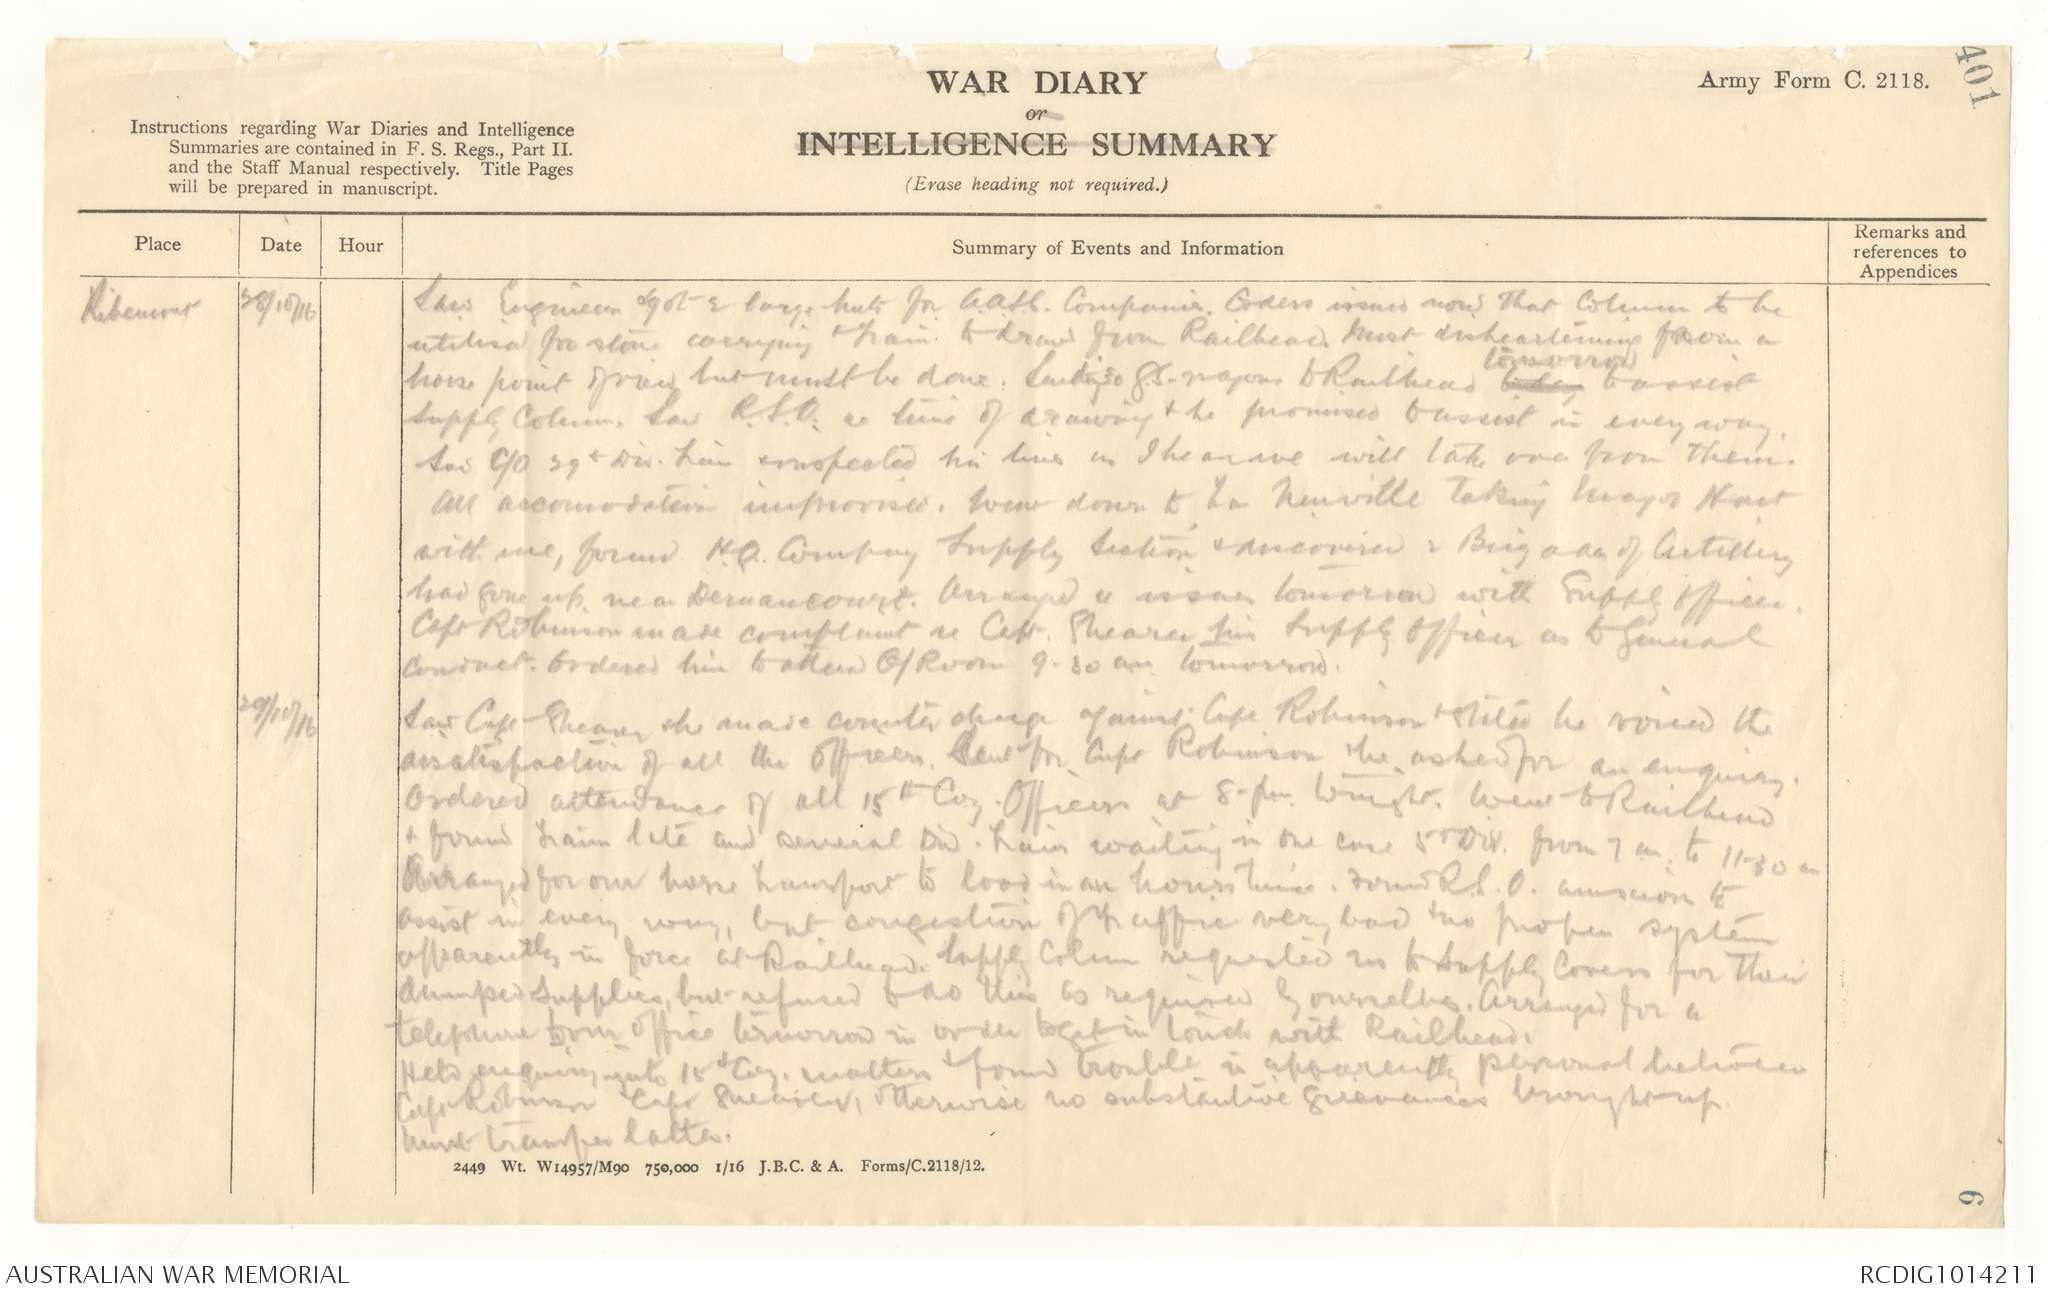 401
Army Form C. 2118.
WAR DIARY
or
INTELLIGENCE SUMMARY
(Erase heading not required.)
Instructions regarding War Diaries and Intelligence
Summaries are contained in F. S. Regs., Part II.
and the Staff Manual respectively. Title Pages
will be prepared in manuscript.
Place Date Hour Summary of Events and Information Remarks and references to Appendices
Ribemont 28/10/16 Saw Engineers & got 2 large huts for A.A.S.C. Companies. Orders issued now that Column to be
utilised for stone carrying & Train to draw from Railhead. Most disheartening from a
horse point of view but must be done. G.S. wagons to Railhead tomorrow to assist
Supply Column. Saw R.S.O. re time of drawing & he promised to assist in every way.
Saw C/O 29th Div. Train & inspected his lines as I hear we will take over from them.
All accomodation improvised. Went down to La Neuville taking Major Hart
with me, found H.Q. Company Supply Section & discovered 2 Brigades of Artillery
had gone up near Dernancourt. Arranged re issues tomorrow with Supply Officer.
Capt Robinson made complaint re Capt. Shearer his Supply Officer as to general
conduct. Ordered him to attend O/Room 9-30 am tomorrow.
29/10/16 Saw Capt Shearer & he made counter charge against Capt Robinson & stated he voiced the
dissatisfaction of all the Officers. Sent for Capt Robinson & he asked for an enquiry.
Ordered attendance of all 15th Coy. Officers at 8-pm tonight. Went to Railhead
& found train late and several Div. Trains waiting in one case 5th Div. from 7 am to 11-30 am
Arranged for our horse transport to load in an hours time. Found R.S.O. anxious to
assist in every way, but congestion of traffic very bad & no proper system
apparently in force at Railhead. Supply Colum requested us to supply Covers for their
dumped supplies, but refused to do this as required by ourselves. Arranged for a
telephone to our office tomorrow in order to get in touch with Railhead.
Held enquiry into 15th Coy. matters & found trouble is apparently personal between
Capt Robinson & Capt Shearer, otherwise no substantive grievances brought up.
Must transfer latter.
2449 Wt. W14957/M90 750,000 1/16 J.B.C. & A. Forms/C.2118/12.
6
AUSTRALIAN WAR MEMORIAL
RCDIG1014211